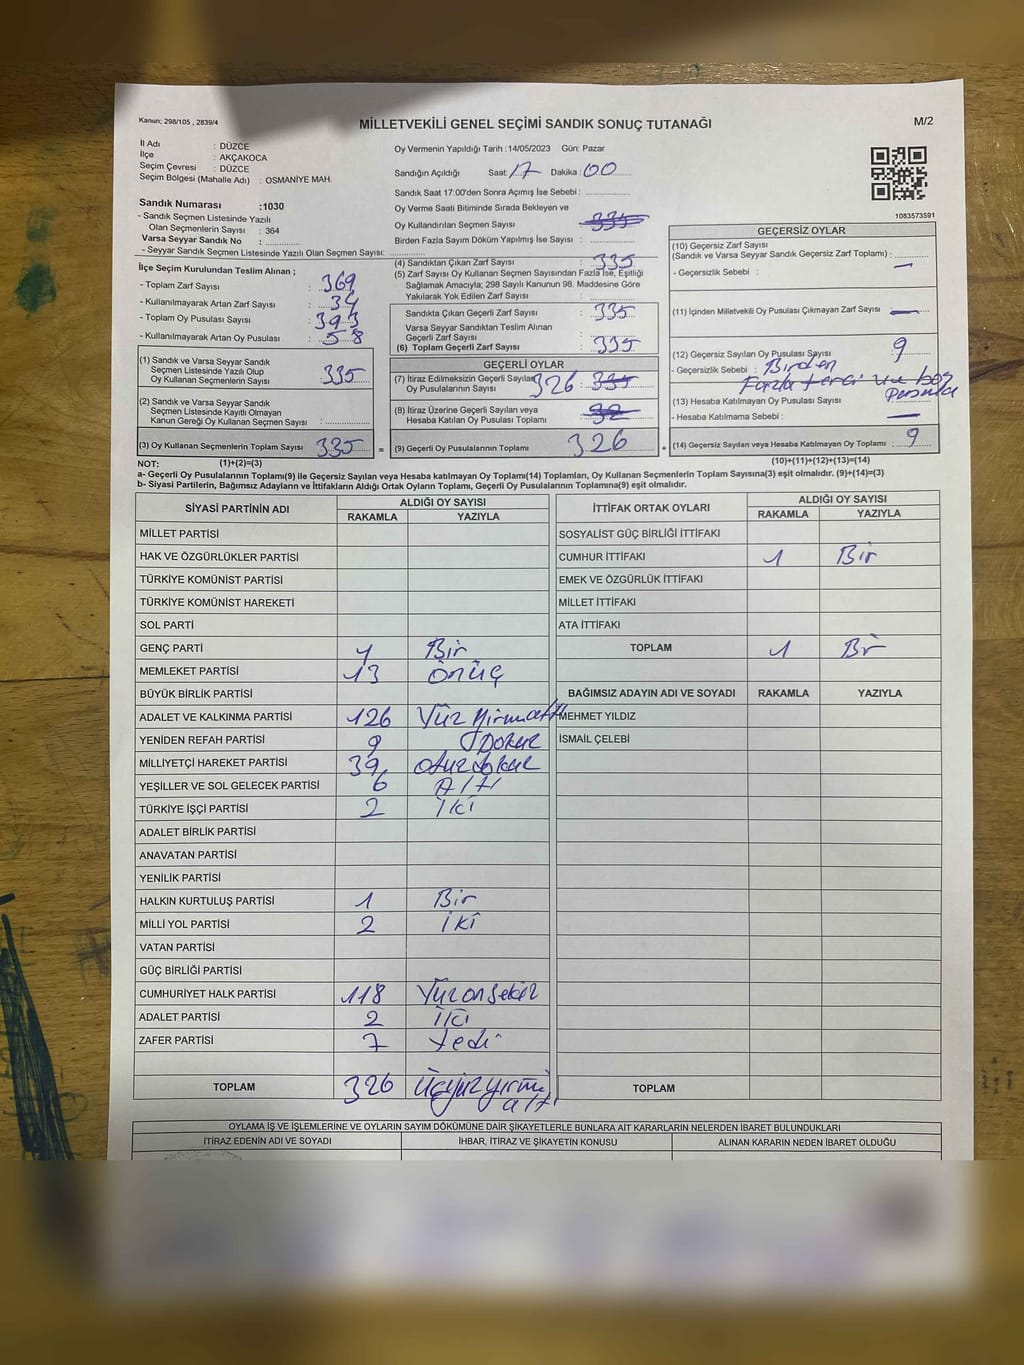 Kanun; 298/105 , 2839/4
MİLLETVEKİLİ GENEL SEÇİMİ SANDIK SONUÇ TUTANAĞI
M/2
İl Adı : DÜZCE
İlçe : AKÇAKOCA
Seçim Çevresi : DÜZCE
Seçim Bölgesi (Mahalle Adı) : OSMANİYE MAH.
Oy Vermenin Yapıldığı Tarih :14/05/2023 Gün: Pazar
Sandığın Açıldığı Saat: 17 Dakika : 00
Sandık Saat 17:00'den Sonra Açımış İse Sebebi :
Oy Verme Saati Bitiminde Sırada Bekleyen ve
Oy Kullandırılan Seçmen Sayısı :
Birden Fazla Sayım Döküm Yapılmış İse Sayısı :
1083573591
Sandık Numarası :1030
- Sandık Seçmen Listesinde Yazılı
Olan Seçmenlerin Sayısı : 364
Varsa Seyyar Sandık No :
- Seyyar Sandık Seçmen Listesinde Yazılı Olan Seçmen Sayısı:
İlçe Seçim Kurulundan Teslim Alınan ;
- Toplam Zarf Sayısı : 369
- Kullanılmayarak Artan Zarf Sayısı : 34
- Toplam Oy Pusulası Sayısı : 393
- Kullanılmayarak Artan Oy Pusulası : 58
(1) Sandık ve Varsa Seyyar Sandık
Seçmen Listesinde Yazılı Olup
Oy Kullanan Seçmenlerin Sayısı : 335
(2) Sandık ve Varsa Seyyar Sandık
Seçmen Listesinde Kayıtlı Olmayan
Kanun Gereği Oy Kullanan Seçmen Sayısı :
(3) Oy Kullanan Seçmenlerin Toplam Sayısı : 335
(4) Sandıktan Çıkan Zarf Sayısı : 335
(5) Zarf Sayısı Oy Kullanan Seçmen Sayısından Fazla İse, Eşitliği
Sağlamak Amacıyla; 298 Sayılı Kanunun 98. Maddesine Göre
Yakılarak Yok Edilen Zarf Sayısı :
Sandıkta Çıkan Geçerli Zarf Sayısı : 335
Varsa Seyyar Sandıktan Teslim Alınan
Geçerli Zarf Sayısı :
(6) Toplam Geçerli Zarf Sayısı : 335
GEÇERLİ OYLAR
(7) İtiraz Edilmeksizin Geçerli Sayılan
Oy Pusulalarının Sayısı 326 335
(8) İtiraz Üzerine Geçerli Sayılan veya
Hesaba Katılan Oy Pusulası Toplamı :
= (9) Geçerli Oy Pusulalarının Toplamı : 326 +
GEÇERSİZ OYLAR
(10) Geçersiz Zarf Sayısı
(Sandık ve Varsa Seyyar Sandık Geçersiz Zarf Toplamı) :
- Geçersizlik Sebebi : —
(11) İçinden Milletvekili Oy Pusulası Çıkmayan Zarf Sayısı : —
(12) Geçersiz Sayılan Oy Pusulası Sayısı : 9
- Geçersizlik Sebebi : Birden
Fazla
(13) Hesaba Katılmayan Oy Pusulası Sayısı :
- Hesaba Katılmama Sebebi : —
(14) Geçersiz Sayılan veya Hesaba Katılmayan Oy Toplamı : 9
NOT: (1)+(2)=(3)
(10)+(11)+(12)+(13)=(14)
a- Geçerli Oy Pusulalarının Toplamı(9) ile Geçersiz Sayılan veya Hesaba katılmayan Oy Toplamı(14) Toplamları, Oy Kullanan Seçmenlerin Toplam Sayısına(3) eşit olmalıdır. (9)+(14)=(3)
b- Siyasi Partilerin, Bağımsız Adayların ve İttifakların Aldığı Ortak Oyların Toplamı, Geçerli Oy Pusulalarının Toplamına(9) eşit olmalıdır.
SİYASİ PARTİNİN ADI
ALDIĞI OY SAYISI
RAKAMLA YAZIYLA
MİLLET PARTİSİ
HAK VE ÖZGÜRLÜKLER PARTİSİ
TÜRKİYE KOMÜNİST PARTİSİ
TÜRKİYE KOMÜNİST HAREKETİ
SOL PARTİ
GENÇ PARTİ 1 Bir
MEMLEKET PARTİSİ 13 Onüç
BÜYÜK BİRLİK PARTİSİ
ADALET VE KALKINMA PARTİSİ 126 Yüz yirmialtı
YENİDEN REFAH PARTİSİ 9 Dokuz
MİLLİYETÇİ HAREKET PARTİSİ 39 otuzdokuz
YEŞİLLER VE SOL GELECEK PARTİSİ 6 Altı
TÜRKİYE İŞÇİ PARTİSİ 2 İki
ADALET BİRLİK PARTİSİ
ANAVATAN PARTİSİ
YENİLİK PARTİSİ
HALKIN KURTULUŞ PARTİSİ 1 Bir
MİLLİ YOL PARTİSİ 2 İki
VATAN PARTİSİ
GÜÇ BİRLİĞİ PARTİSİ
CUMHURİYET HALK PARTİSİ 118 Yüzonsekiz
ADALET PARTİSİ 2 İki
ZAFER PARTİSİ 7 Yedi
TOPLAM 326 Üçyüzyirmi
altı
İTTİFAK ORTAK OYLARI
ALDIĞI OY SAYISI
RAKAMLA YAZIYLA
SOSYALİST GÜÇ BİRLİĞİ İTTİFAKI
CUMHUR İTTİFAKI 1 Bir
EMEK VE ÖZGÜRLÜK İTTİFAKI
MİLLET İTTİFAKI
ATA İTTİFAKI
TOPLAM 1 Bir
BAĞIMSIZ ADAYIN ADI VE SOYADI RAKAMLA YAZIYLA
MEHMET YILDIZ
İSMAİL ÇELEBİ
TOPLAM
OYLAMA İŞ VE İŞLEMLERİNE VE OYLARIN SAYIM DÖKÜMÜNE DAİR ŞİKAYETLERLE BUNLARA AİT KARARLARIN NELERDEN İBARET BULUNDUKLARI
İTİRAZ EDENİN ADI VE SOYADI İHBAR, İTİRAZ VE ŞİKAYETİN KONUSU ALINAN KARARIN NEDEN İBARET OLDUĞU